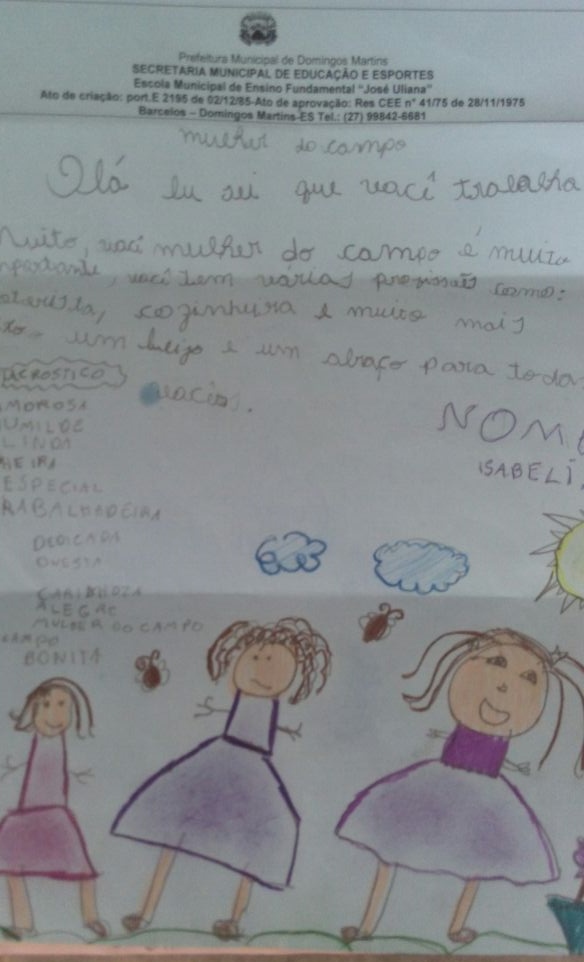 Prefeitura Municipal de Domingos Martins
SECRETARIA MUNICIPAL DE EDUCAÇÃO E ESPORTES
Escola Municipal de Ensino Fundamental "José Uliana"
Ato de criação: port.E 2195 de 02/12/85-Ato de aprovação: Res CEE n° 41/75 de 28/11/1975
Barcelos – Domingos Martins-ES Tel.: (27) 99842-6681
mulher do campo
Olá eu sei que você trabalha
Muito, você mulher do campo é muito
mportante, você tem várias profissões como:
cozinhera e muito mais
um beijo e um abraço para toda
vocês.
ACROSTICO
MOROSA
UMILDE
LINDA
HEIRA
ESPECIAL
RABALHADEIRA
DEDICADA
ONESTA
CARINHOZA
ALEGRE
MULHER DO CAMPO
CAMPO
BONITA
NOME
ISABELI